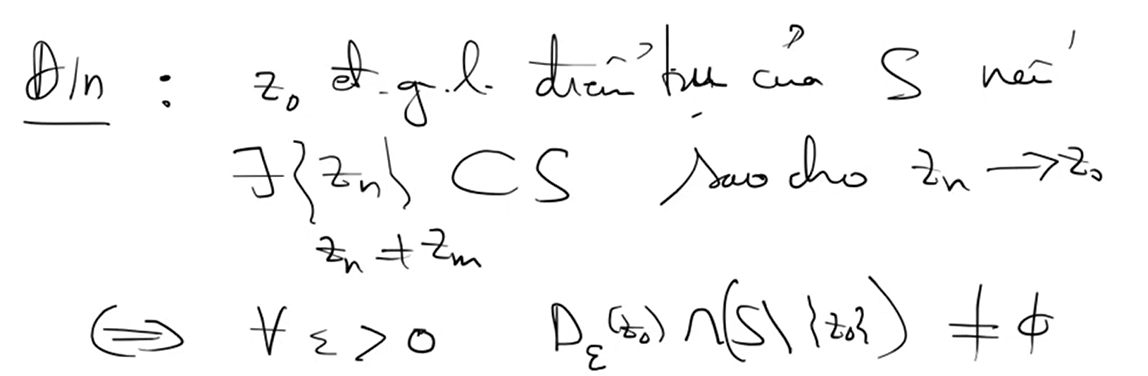 Đ/n : z₀ đ.g.l. điểm tụ của S nếu
∃ {zₙ} ⊂ S sao cho zₙ → z₀
zₙ ≠ zₘ
⟺ ∀ ε > 0 D_ε(z₀) ∩ (S \ {z₀}) ≠ ϕ